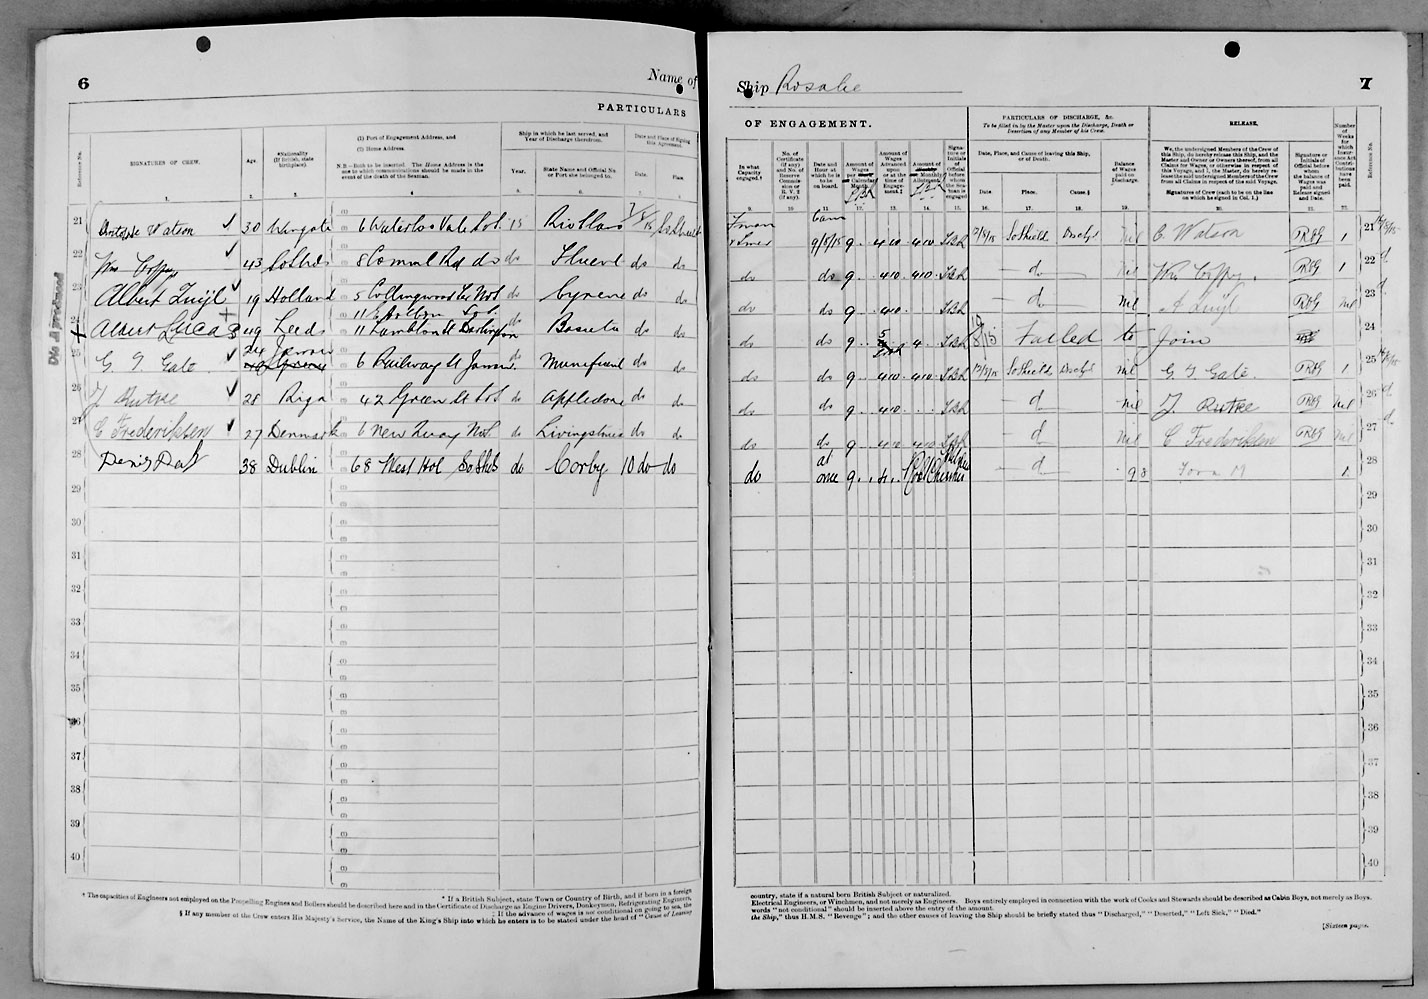 6
Name of
PARTICULARS
Reference No.
SIGNATURES OF CREW.
Age.
*Nationality
(If British, state
birthplace).
(1) Port of Engagement Address, and
(2) Home Address.
N.B.—Both to be inserted. The Home Address is the
one to which communications should be made in the
event of the death of the Seaman.
Ship in which he last served, and
Year of Discharge therefrom.
Year.
State Name and Official No.
or Port she belonged to.
Date and Place of Signing
this Agreement.
Date.
Place.
1. 2. 3. 4. 5. 6. 7. 8.
21 Watson 30 6 Waterloo Vale 15 7/5/15
22 Wm 43 8 Coml Rd do do do do
23 Albert Zuijl 19 Holland 5 Collingwood do Cyrene do do
24 Albert Lucas 49 Leeds 11 Lambton St Darlington do do do
25 G. T Gate 24 Jarrow 6 Railway St Jarrow do do do
26 J Rutke 28 Riga 42 Green St do Appledore do do
27 C Frederiksen 27 Denmark 6 New Quay do Livingstonia do do
28 38 Dublin 68 West Hol So Shds do Corby 10 do do
29
30
31
32
33
34
35
36
37
38
39
40
† The capacities of Engineers not employed on the Propelling Engines and Boilers should be described here and in the Certificate of Discharge as Engine Drivers, Donkeymen, Refrigerating Engineers,
* If a British Subject, state Town or Country of Birth, and if born in a foreign
‡ If the advance of wages is not conditional on going to sea, the
§ If any member of the Crew enters His Majesty's Service, the Name of the King's Ship into which he enters is to be stated under the head of "Cause of Leaving
Ship Rosalie
7
OF ENGAGEMENT.
PARTICULARS OF DISCHARGE, &c.
To be filled in by the Master upon the Discharge, Death or
Desertion of any Member of his Crew.
RELEASE.
In what
Capacity
engaged.†
No. of
Certificate
(if any)
and No. of
Reserve
Commis-
sion or
R. V. 2
(if any).
Date and
Hour at
which he is
to be
on board.
Amount of
Wages
per
Calendar
Month.
Amount of
Wages
Advanced
upon or
at the
time of
Engage-
ment.‡
Amount of
Monthly
Allotment.
Signa-
ture or
Initials
of
Official
before
whom
the Sea-
man is
engaged
Date, Place, and Cause of leaving this Ship,
or of Death.
Date.
Place.
Cause.§
Balance
of Wages
paid on
Discharge.
We, the undersigned Members of the Crew of
this Ship, do hereby release this Ship, and the
Master and Owner or Owners thereof, from all
Claims for Wages, or otherwise in respect of
this Voyage, and I, the Master, do hereby re-
lease the said undersigned Members of the Crew
from all Claims in respect of the said Voyage.
Signatures of Crew (each to be on the line
on which he signed in Col. 1.)
Signature or
Initials of
Official before
whom
the balance of
Wages was
paid and
Release signed
and Date.
Number
of
Weeks
for
which
Insur-
ance Act
Contri-
butions
have
been
paid.
Reference No.
9. 10 11 12. 13. 14. 15. 16. 17. 18. 19. 20. 21. 22.
6am 9/5/15 9 4 10 4 10 So Shields Dischgd Nil C. Watson 1 21
do do 9 4 10 4 10 do Nil Wm 1 22
do do 9 4 10 do Nil A Zuijl Nil 23
do do 9 5 4 Failed to Join 24
do do 9 4 10 4 10 So Shields Dischgd Nil G T Gate 1 25
do do 9 4 10 do Nil J Rutke Nil 26
do do 9 4 10 4 10 do Nil C Frederiksen Nil 27
do at once 9 do 1 28
29
30
31
32
33
34
35
36
37
38
39
40
country, state if a natural born British Subject or naturalized.
Electrical Engineers, or Winchmen, and not merely as Engineers. Boys entirely employed in connection with the work of Cooks and Stewards should be described as Cabin Boys, not merely as Boys.
words "not conditional" should be inserted above the entry of the amount.
the Ship," thus H.M.S. "Revenge"; and the other causes of leaving the Ship should be briefly stated thus "Discharged," "Deserted," "Left Sick," "Died."
[Sixteen pages.